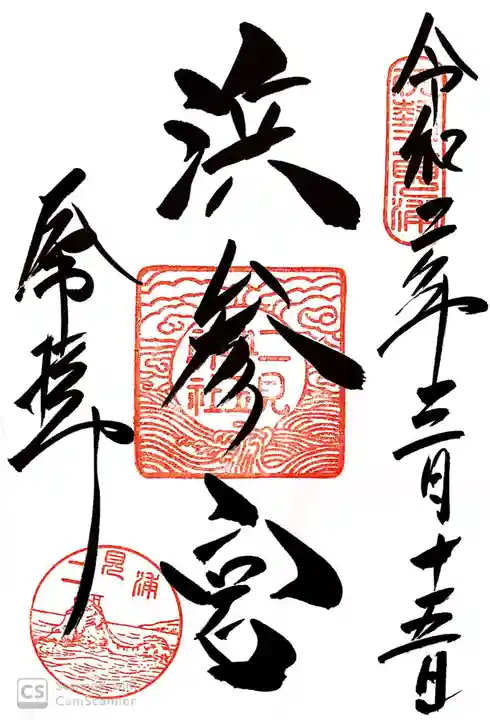 令和二年三月十五日
伊勢二見浦
浜参宮
二見
興玉
神社
拝
二見浦
CS
CamScanner